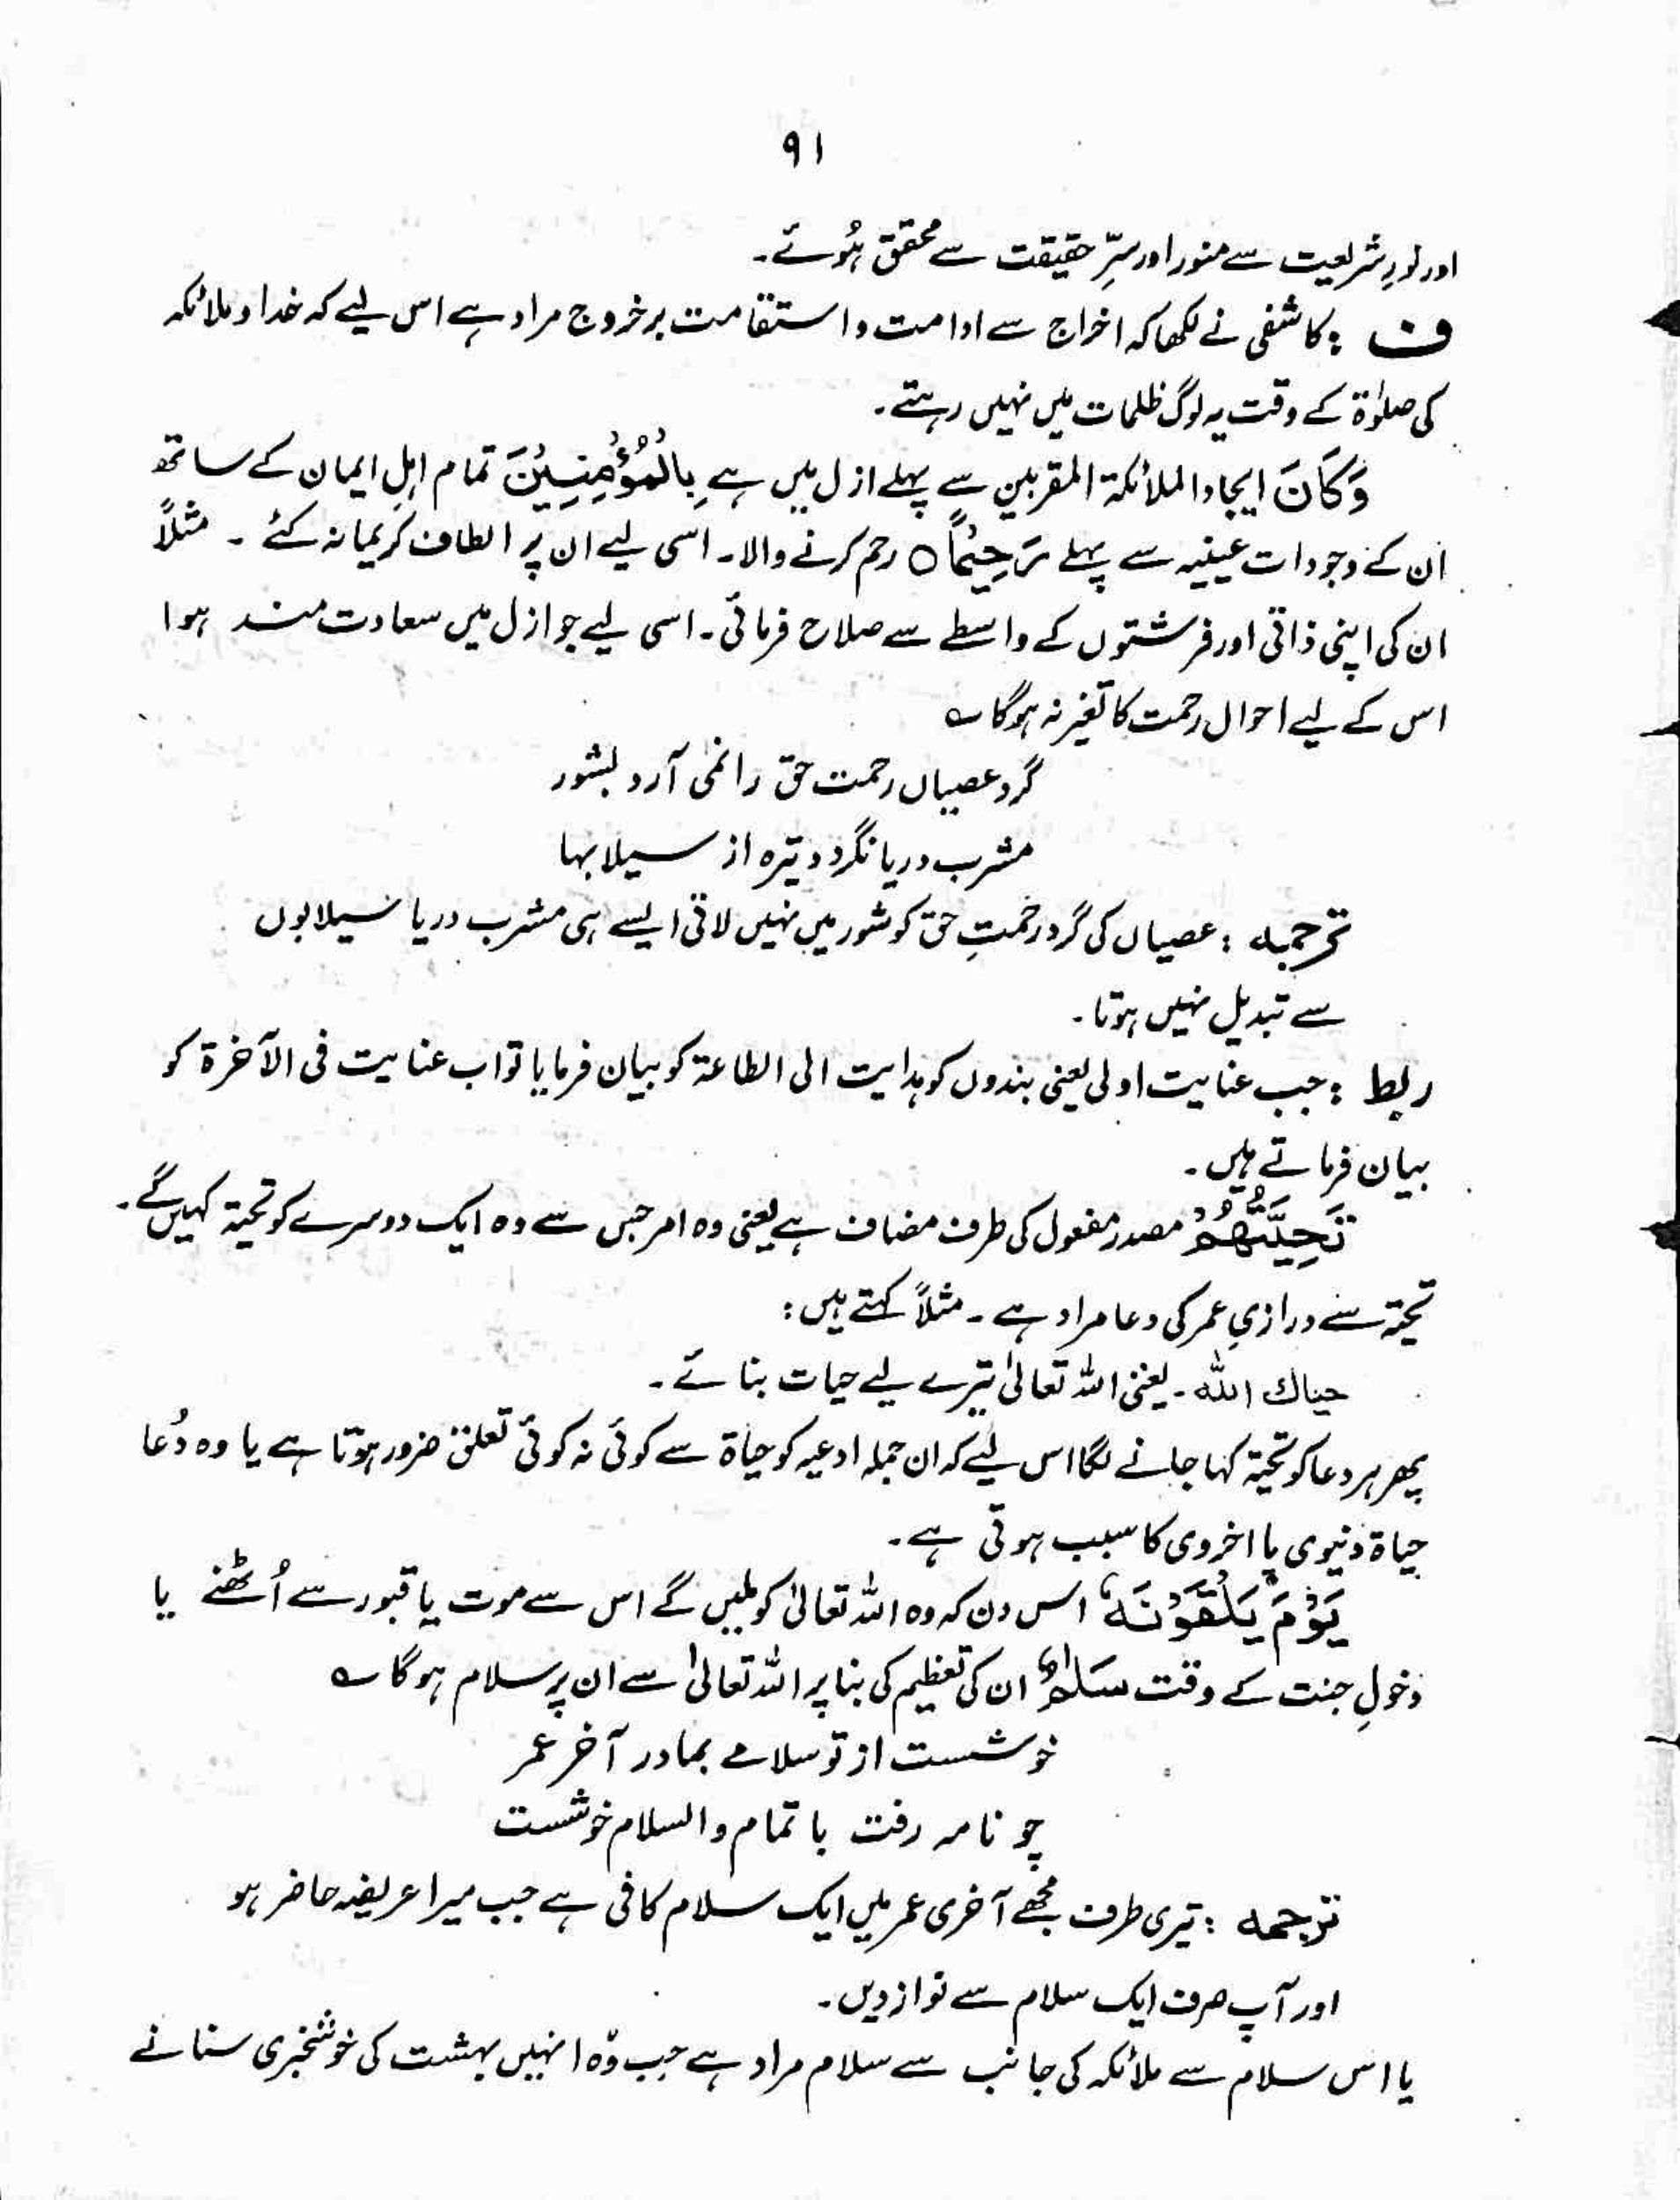 ۹۱
اور نورِ شریعت سے منور اور سرِّ حقیقت سے محقق ہُوئے۔
ف : کاشفی نے لکھا کہ اخراج سے ادامت و استقامت بر خروج مراد ہے اس لیے کہ خدا و ملائکہ
کی صلوٰۃ کے وقت یہ لوگ ظلمات میں نہیں رہتے۔
وَكَانَ ایجاد الملائکۃ المقربین سے پہلے ازل میں ہے بِالْمُؤْمِنِيْنَ تمام اہلِ ایمان کے ساتھ
ان کے وجودات عینیہ سے پہلے رَحِيْمًا ○ رحم کرنے والا۔ اسی لیے ان پر الطاف کریمانہ کئے ۔ مثلاً
ان کی اپنی ذاتی اور فرشتوں کے واسطے سے صلاح فرمائی۔ اسی لیے جو ازل میں سعادت مند ہوا
اس کے لیے احوال رحمت کا تغیر نہ ہوگا ؎
گرد عصیاں رحمت حق را نمی آرد بشور
مشرب دریا نگردد تیرہ از سیلابہا
ترجمہ : عصیاں کی گرد رحمتِ حق کو شور میں نہیں لاتی ایسے ہی مشرب دریا سیلابوں
سے تبدیل نہیں ہوتا۔
ربط : جب عنایت اولی یعنی بندوں کو ہدایت الی الطاعۃ کو بیان فرمایا تو اب عنایت فی الآخرۃ کو
بیان فرماتے ہیں۔
تَحِيَّتُهُمْ مصدر مفعول کی طرف مضاف ہے یعنی وہ امر جس سے وہ ایک دوسرے کو تحیۃ کہیں گے۔
تحیۃ سے درازیِ عمر کی دعا مراد ہے ۔ مثلاً کہتے ہیں :
حیاك الله ۔ یعنی اللہ تعالیٰ تیرے لیے حیات بنائے ۔
پھر ہر دعا کو تحیۃ کہا جانے لگا اس لیے کہ ان جملہ ادعیہ کو حیاۃ سے کوئی نہ کوئی تعلق ضرور ہوتا ہے یا وہ دُعا
حیاۃ دنیوی یا اخروی کا سبب ہوتی ہے۔
يَوْمَ يَلْقَوْنَهٗ اس دن کہ وہ اللہ تعالیٰ کو ملیں گے اس سے موت یا قبور سے اُٹھنے یا
دخولِ جنت کے وقت سَلٰمٌ ان کی تعظیم کی بنا پر اللہ تعالیٰ سے ان پر سلام ہوگا ؎
خوشست از تو سلامے بما در آخر عمر
چو نامہ رفت باتمام والسلام خوشست
ترجمہ : تیری طرف مجھے آخری عمر میں ایک سلام کافی ہے جب میرا عریضہ حاضر ہو
اور آپ صرف ایک سلام سے نواز دیں۔
یا اس سلام سے ملائکہ کی جانب سے سلام مراد ہے جب وہ انہیں بہشت کی خوشخبری سنانے